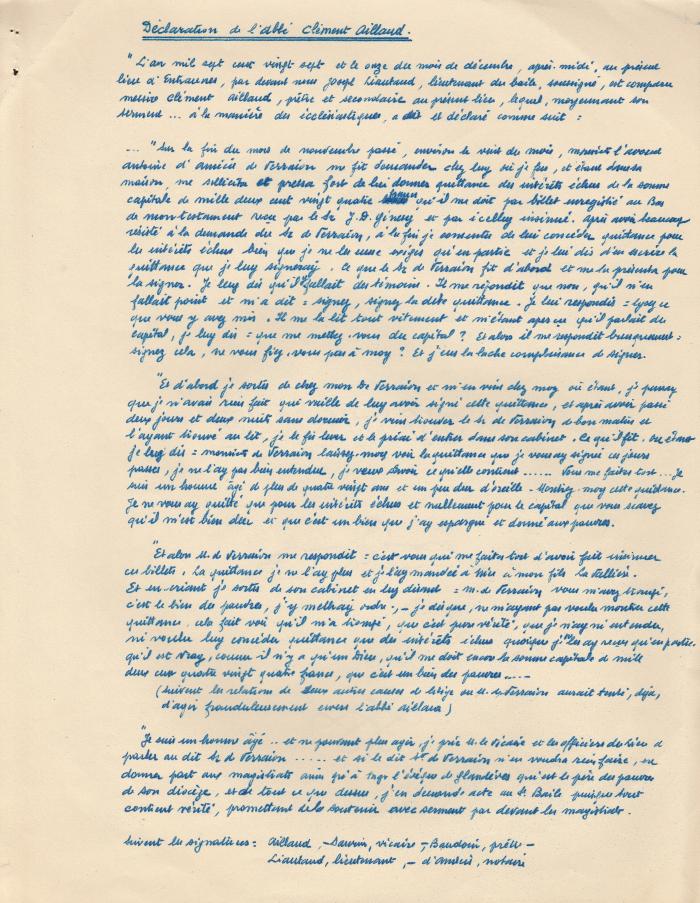 Déclaration de l'abbé Clément Aillaud.
"L'an mil sept cent vingt sept et le onze du mois de décembre, après-midi, au présent
lieu d'Entraunes, par devant nous Joseph Liautaud, lieutenant du baile, soussigné, est comparu
messire Clément Aillaud, prêtre et secondaire au présent lieu, lequel, moyennant son
serment ... à la manière des ecclésiastiques, a dit et déclaré comme suit :
... "Sur la fin du mois de novembre passé, environ le vuit du mois, monsieur l'avocat
Antoine d'Amiéis de Verraion me fit demander chez luy où je feu, et étant dans sa
maison, me sollicita et pressa fort de lui donner quittance des intérêts échus de la somme
capitale de mille deux cent vingt quatre francs qu'il me doit par billet enregistré au Bas
de mon testament receu par le sr J.D. Giniey et par icelluy insinué. Après avoir beaucoup
résisté à la demande du sr de Verraion, à la fin je consentes de lui concéder quittance pour
les intérêts échus bien que je ne les eusse exigés qu'en partie et je lui dis d'en écrire la
quittance que je luy signeray. Ce que le sr de Verraion fit d'abord et me la présenta pour
la signer. Je luy dis qu'il fallait des témoins. Il me répondit que non, qu'il n'en
fallait point et m'a dit = signez, signez la dete quittance. Je lui respondis = lysez ce
que vous y avez mis. Il me la lit tout vitement et m'étant aperceu qu'il parlait du
capital, je luy dis = que me mettez-vous du capital ? Et alors il me respondit brusquement =
signez cela, ne vous fiez-vous pas à moy ? Et j'eus la lache complaisance de signer.
"Et d'abord je sortes de chez mon dt Verraion et m'en vins chez moy où étant, je pensey
que je n'avais rien fait qui vaille de luy avoir signé cette quittance, et après avoir passé
deux jours et deux nuits sans dormir, je vins trouver le sr de Verraion de bon matin et
l'ayant trouvé au lit, je le fis lever et le priai d'entrer dans son cabinet. Ce qu'il fit, où étant
je luy dis = monsieur de Verraion laissez-moy voir la quittance que je vous ay signé ces jours
passés, je ne l'ay pas bien entendue, je veux savoir ce qu'elle contient ...... Vous me faites tort... Je
suis un homme âgé de plus de quatre vingt ans et un peu dur d'oreille. Montrez-moy cette quittance.
Je ne vous ay quitté que pour les intérêts échus et nullement pour le capital que vous savez
qu'il m'est bien deu et que c'est un bien que j'ay espargné et donné aux pauvres.
"Et alors M. de Verraion me respondit = c'est vous qui me faites tort d'avoir fait insinuer
ces billets. La quittance je ne l'ay plus et je l'ay mandée à Nice à mon fils La Vallière.
Et en criant je sortes de son cabinet en luy disant = M. de Verraion vous m'avez trompé,
c'est le bien de pauvres, j'y mettray ordre, – je dis que, ne m'ayant pas voulu montrer cette
quittance, cela fait voir qu'il m'a trompé, que c'est pure vérité, que je n'ay ni entendu,
ni voulu luy concéder quittance que des intérêts échus quoique je les ay receu qu'en partie
qu'il est vray, comme il n'y a qu'un Dieu, qu'il me doit encore la somme capitale de mill
deux cent quatre vingt quatre francs, que c'est un bien des pauvres .....
(suivent les relations de deux autres causes de litige où M. de Verraion aurait tenté, déjà,
d'agir frauduleusement envers l'abbé Aillaud)
"Je suis un homme âgé .. et ne pouvant plus agir, je prie M. le vicaire et les officiers du lieu d
parler au dit sr de Verraion ..... et si le dit Sr de Verraion n'en voudra rien faire, en
donner part aux magistrats ainsi qu'à Mgr l'évêque de Glandèves qui est le père des pauvres
de son diocèze, et de tout ce que dessus, j'en demande acte au Sr Baile puisque tout
contient vérité, promettant de le soutenir avec serment par devant les magistrats.
Suivent les signatures = Aillaud, – Dauvin, vicaire –, Baudoin, prêtre –
Liautaud, lieutenant, – d'Amiéis, notaire